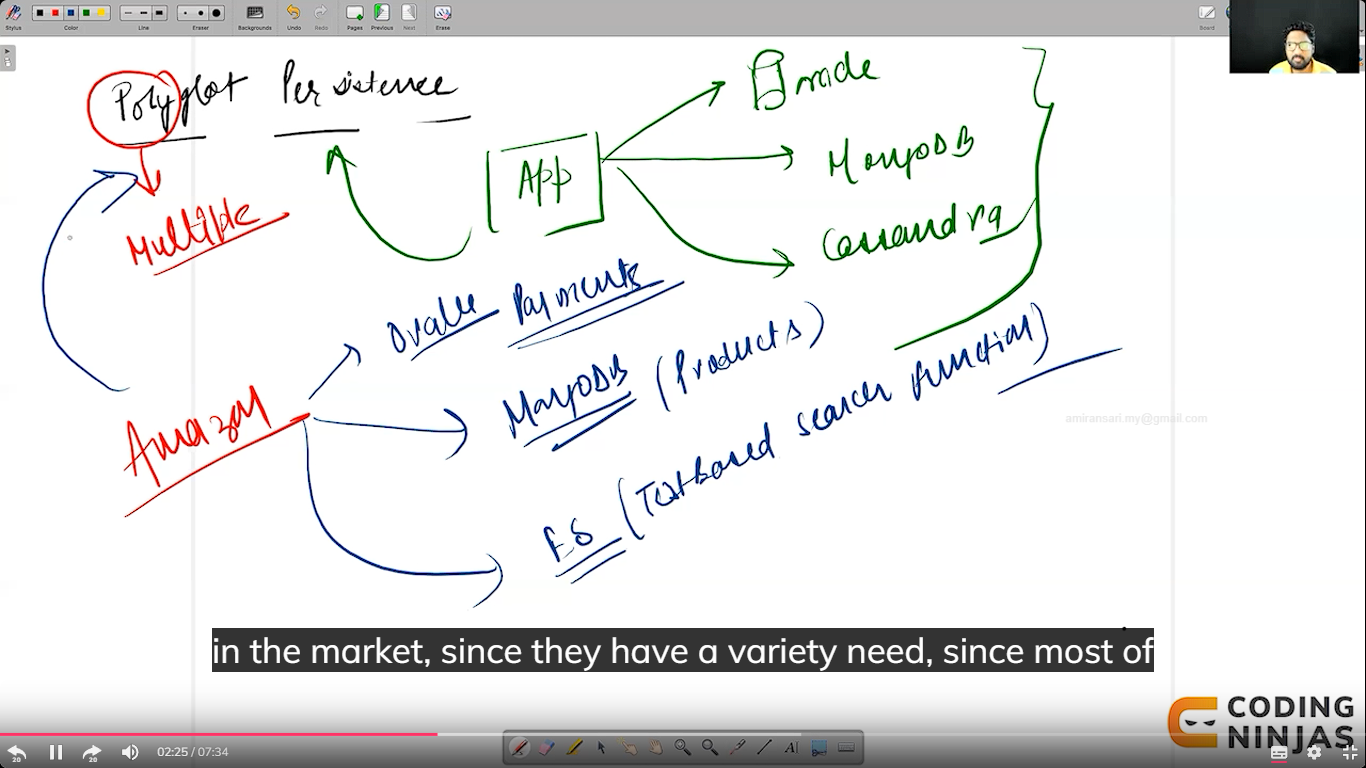 Stylus
Color
Line
Eraser
Backgrounds
Undo
Redo
Pages
Previous
Next
Erase
Board
Polyglot Persistence
Multiple
App
MongoDB
Cassandra
Amazon
Payments
MongoDB (Products)
ES (Text Based search function)
amiransari.my@gmail.com
in the market, since they have a variety need, since most of
CODING
NINJAS
20
20
02:25 / 07:34